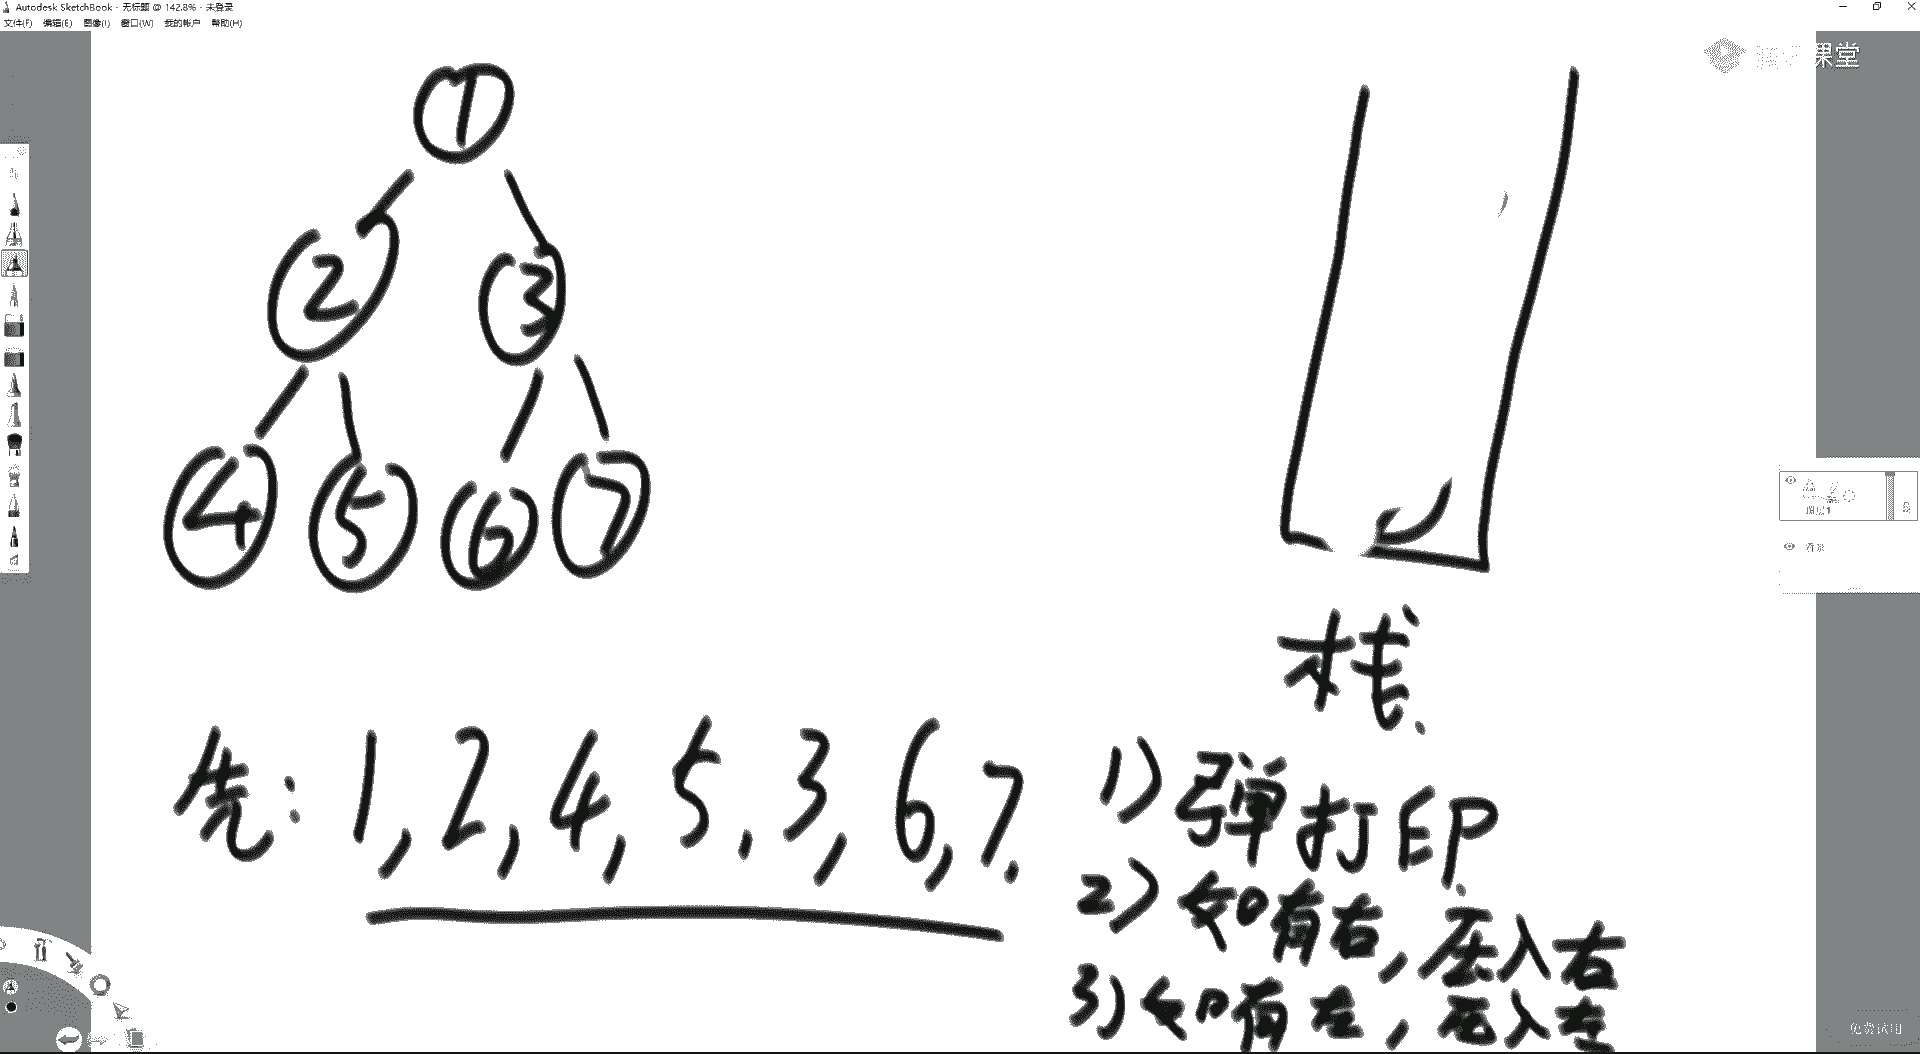 Autodesk SketchBook - 无标题 @ 142.8% - 未登录
文件(F) 编辑(E) 图像(I) 窗口(W) 我的帐户 帮助(H)
课堂
1
2 3
4 5 6 7
栈
先: 1, 2, 4, 5, 3, 6, 7.
1) 弹打印
2) 如有右, 压入右
3) 如有左, 压入左
图层1
背景
免费试用